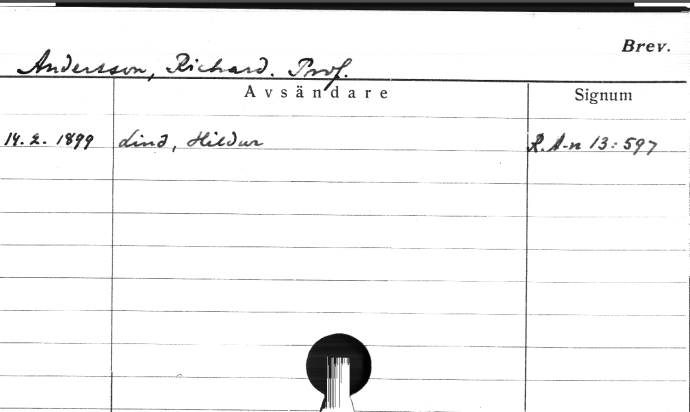 Brev.
Andersson, Richard. Prof.
Avsändare Signum
14.2.1899 Lind, Hildur R.A-n 13:597